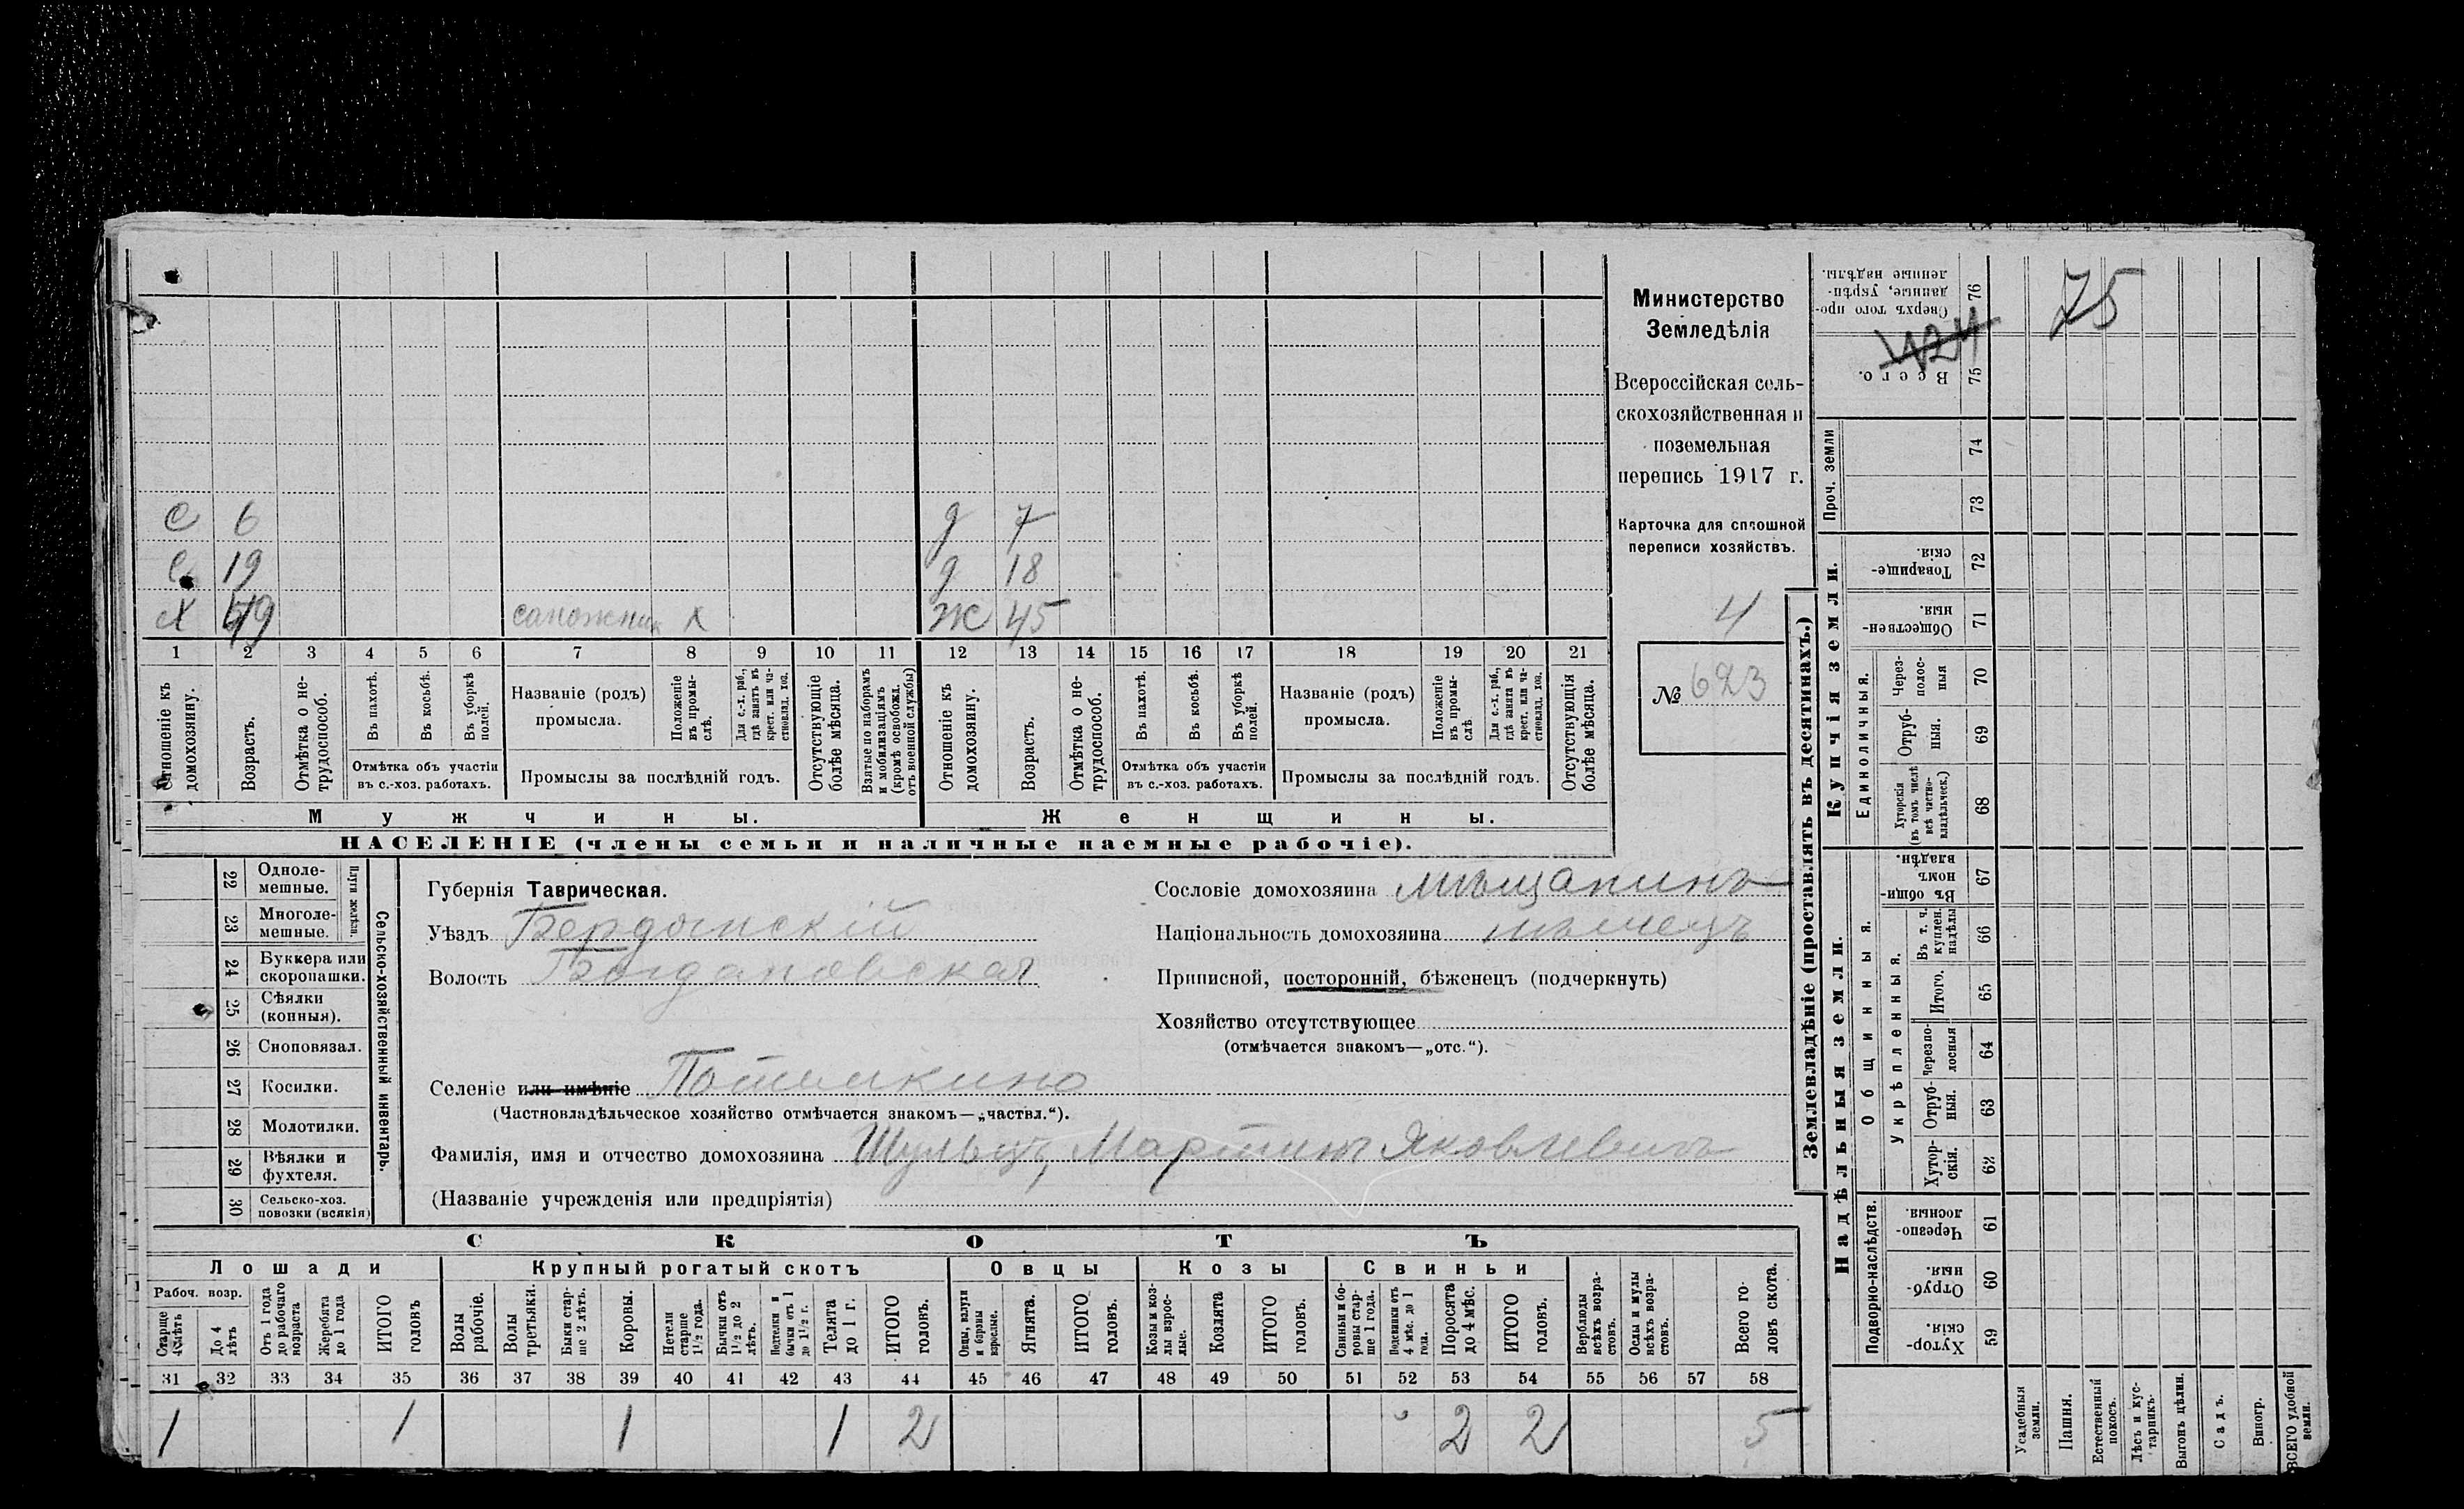 Министерство
Земледѣлія
Всероссійская сель-
скохозяйственная и
поземельная
перепись 1917 г.
Карточка для сплошной
переписи хозяйствъ.
4
№ 623
с 6 д 7
с 19 д 18
х 49 сапожник х ж 45
1 2 3 4 5 6 7 8 9 10 11 12 13 14 15 16 17 18 19 20 21
Отношеніе къ домохозяину.
Возрастъ.
Отмѣтка о не-трудоспособ.
Въ пахотѣ.
Въ косьбѣ.
Въ уборкѣ полей.
Отмѣтка объ участіи
въ с.-хоз. работахъ.
Названіе (родъ)
промысла.
Положеніе въ промы-слѣ.
Для с.-х. раб., гдѣ занятъ въ крест. или ча-стновлад. хоз.
Промыслы за послѣдній годъ.
Отсутствующіе болѣе мѣсяца.
Взятые по наборамъ и мобилизаціямъ (кромѣ освобожд. отъ военной службы)
Отношеніе къ домохозяину.
Возрастъ.
Отмѣтка о не-трудоспособ.
Въ пахотѣ.
Въ косьбѣ.
Въ уборкѣ полей.
Отмѣтка объ участіи
въ с.-хоз. работахъ.
Названіе (родъ)
промысла.
Положеніе въ промы-слѣ
Для с.-х. раб., гдѣ занята въ крест. или ча-стновлад. хоз.
Промыслы за послѣдній годъ.
Отсутствующія болѣе мѣсяца.
Мужчины. Женщины.
НАСЕЛЕНІЕ (члены семьи и наличные наемные рабочіе).
Сельско-хозяйственный инвентарь.
Плуги желѣзн.
22 Одноле-мешные.
23 Многоле-мешные.
24 Буккера или скоропашки.
25 Сѣялки (конныя).
26 Сноповязал.
27 Косилки.
28 Молотилки.
29 Вѣялки и фухтеля.
30 Сельско-хоз. повозки (всякія)
Губернія Таврическая.
Уѣздъ Бердянскій
Волость Богдановская
Селеніе или имѣніе Потемкино
(Частновладѣльческое хозяйство отмѣчается знакомъ—„частвл.“).
Фамилія, имя и отчество домохозяина Шульцъ, Мартинъ Яковлевичъ
(Названіе учрежденія или предпріятія)
Сословіе домохозяина мѣщанинъ
Національность домохозяина нѣмецъ
Приписной, посторонній, бѣженецъ (подчеркнуть)
Хозяйство отсутствующее
(отмѣчается знакомъ—„отс.“).
СКОТЪ
Лошади Крупный рогатый скотъ Овцы Козы Свиньи
Рабоч. возр.
Старше 4 лѣтъ
До 4 лѣтъ
Отъ 1 года до рабочаго возраста
Жеребята до 1 года
ИТОГО головъ
Волы рабочіе.
Волы третьяки.
Быки стар-ше 2 лѣтъ.
Коровы.
Нетели старше 1½ года.
Бычки отъ 1½ до 2 лѣтъ.
Подтелки и бычки отъ 1 до 1½ г.
Телята до 1 г.
ИТОГО головъ.
Овцы, валухи и бараны взрослые.
Ягнята.
ИТОГО головъ.
Козы и коз-лы взрос-лые.
Козлята
ИТОГО головъ.
Свиньи и бо-ровы стар-ше 1 года.
Подсвинки отъ 4 мѣс. до 1 года.
Поросята до 4 мѣс.
ИТОГО головъ.
Верблюды всѣхъ возра-стовъ.
Ослы и мулы всѣхъ возра-стовъ.
Всего го-ловъ скота.
31 32 33 34 35 36 37 38 39 40 41 42 43 44 45 46 47 48 49 50 51 52 53 54 55 56 57 58
1 1 1 1 2 2 2 5
Землевладѣніе (проставлять въ десятинахъ.)
Купчія земли.
Надѣльныя земли.
75
424
Сверхъ того про-данные, укрѣп-ленные надѣлы. 76
Всего. 75
Проч. земли 74
73
Товарище-скія. 72
Обществен-ныя. 71
Единоличныя.
Через-полос-ныя 70
Отруб-ныя. 69
Хуторскія (въ томъ числѣ всѣ частно-владѣльческ.) 68
Общинныя.
Въ общин-номъ владѣн. 67
Укрѣпленныя.
Въ т. ч. куплен. надѣлы 66
Итого. 65
Черезпо-лосныя 64
Отруб-ныя. 63
Хутор-скія. 62
Подворно-наслѣдств.
Черезпо-лосныя. 61
Отруб-ныя. 60
Хутор-скія. 59
Усадебныя земли.
Пашня.
Естественный покосъ.
Лѣсъ и кус-тарникъ.
Выгонъ цѣлин.
Садъ.
Виногр.
ВСЕГО удобной земли.